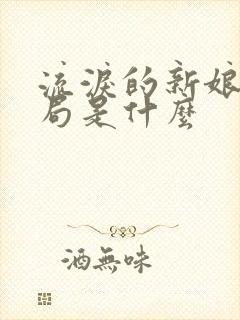 流淚的新娘
局是什麼
酒無味